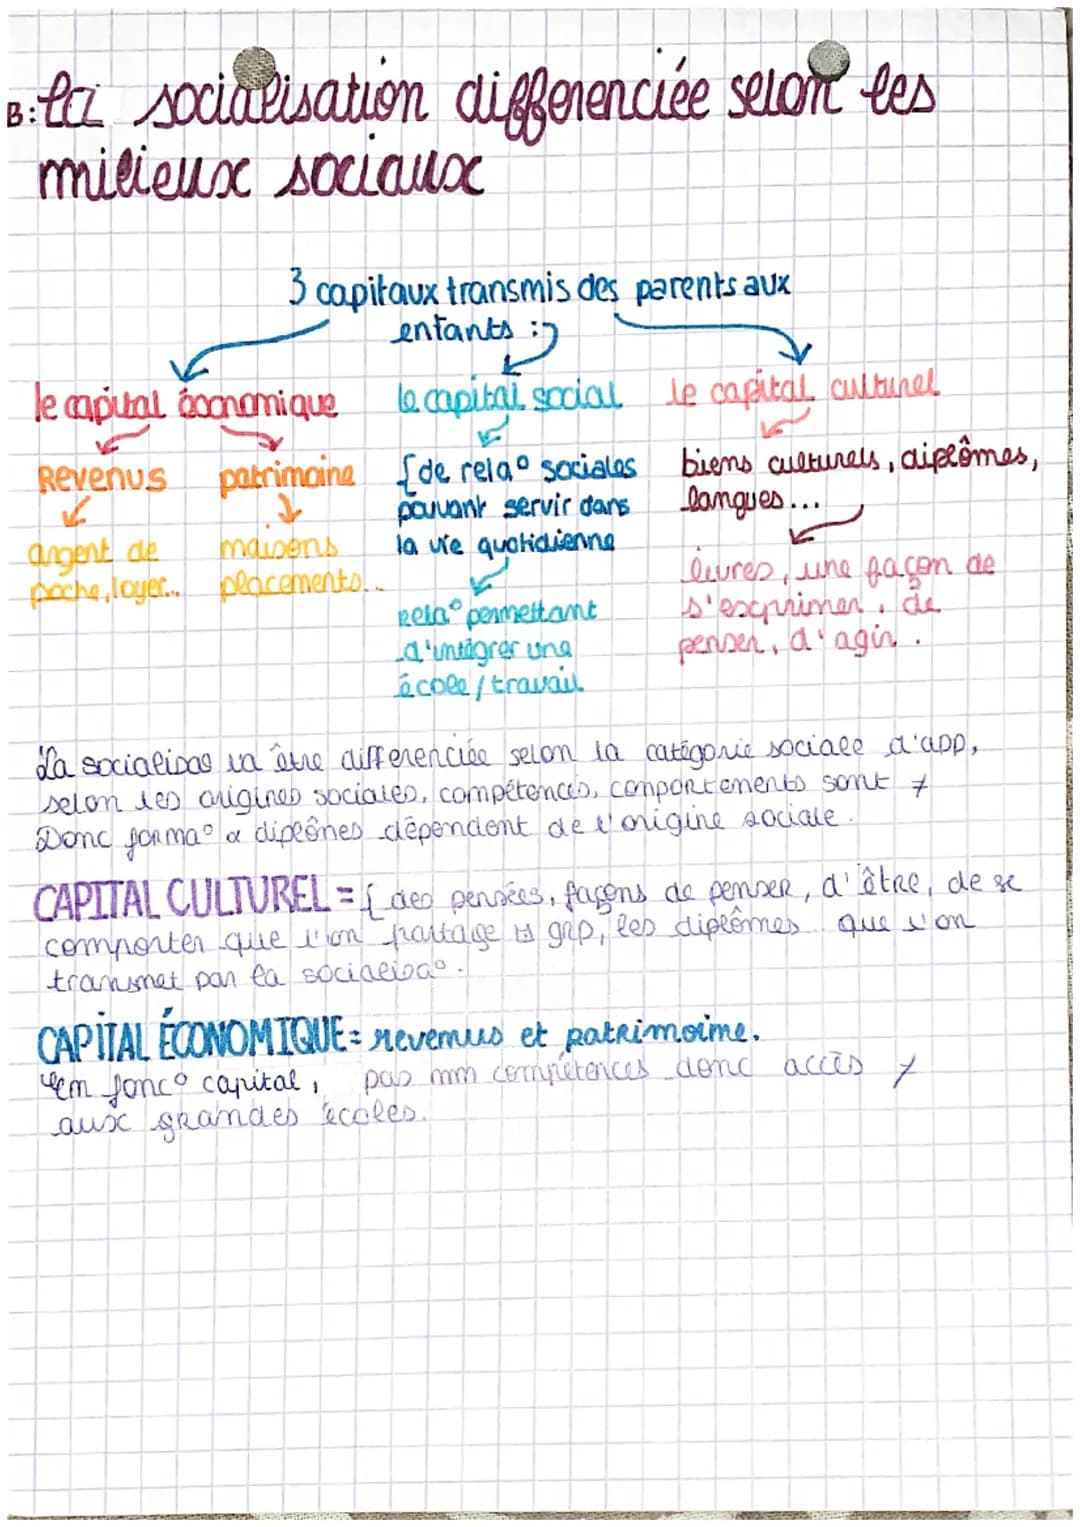 B: La socialisation differenciée selon les
milieux sociaux
3 capitaux transmis des parents aux
enfants :
le capital économique
le capital social
le capital culturel
Revenus
patrimoine
argent de
poche, loyer...
maisons
placements...
{ de rela° sociales
pouvant servir dans
la vie quotidienne
Rela° permettant
d'intégrer une
école / travail
biens culturels, diplômes,
langues...
livres, une façon de
s'exprimer, de
penser, d'agir.
La socialisa° va être differenciée selon la catégorie sociale d'app,
selon les origines sociales, compétences, comportements sont ≠
Donc forma° & diplômes dépendent de l'origine sociale.
CAPITAL CULTUREL = { des pensées, façons de penser, d'être, de se
comporter que l'on partage grp, les diplômes... que l'on
transmet par la socialisa°.
CAPITAL ÉCONOMIQUE = revenus et patrimoine.
en fonc° capital, pas mm compétences donc accès ≠
aux grandes écoles.